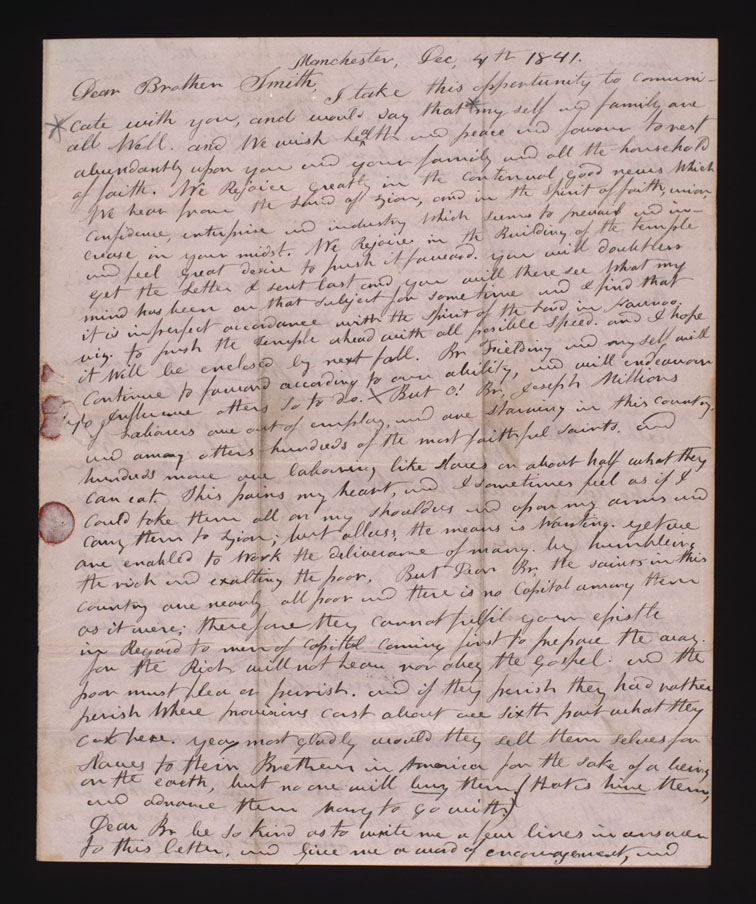 Manchester, Dec, 4th 1841.
Dear Brother Smith,
I take this opportunity to comuni-
cate with you, and would say that my self and family are
all Well. and We wish helth and peace and favour to rest
abundantly upon you and your family and all the household
of faith. We Rejoice greatly in the continual good news Which
We hear from the Land of Zion, and in the Spirit of faith, union,
Confidence, enterprise and industry Which seems to prevail and in-
crease in your midst. We Rejoice in the Building of the temple
and feel great desire to push it foward. you will doubtless
get the Letter I sent last and you will there see What my
mind has been on that subject for some time and I find that
it is in perfect accordance with the Spirit of the Lord in Nauvoo.
viz. to push the temple ahead with all posible Speed. and I hope
it Will be enclosed by next fall. Br Fielding and my self will
continue to foward according to our ability, and will endeavour
to Influence others so to do. But O! Br. Joseph Millions
of Labourers are out of employ. and are starving in this country.
and among others hundreds of the most faithful saints. and
hundreds more are labouring like slaves on about half what they
can eat This pains my heart, and I sometimes feel as if I
could take them all on my shoulders and upon my arms and
carry them to Zion; but allass, the means is Wanting. yet we
are enabled to Work the deliverance of many. by humbling
the rich and exalting the poor. But Dear Br. the saints in this
country are nearly all poor and there is no Capital among them
as it were; therefore they cannot fulfil your epistle
in Regard to men of Capital Coming first to prepare the way.
for the Rich will not hear nor obey the Gospel. and the
poor must flea or perrish. and if they perish they had rather
perish Where provisions cost about one sixth part what they
cost here. yea, most gladly would they sell them selves for
slaves to their Bretheren in America for the sake of a being
on the earth, but no one will buy them (that is hire them,
and advance them money to go with)
Dear Br be so kind as to write me a few lines in answer
to this letter, and give me a word of encouragement, and